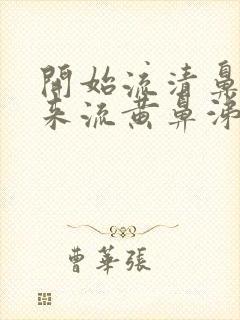 開始流清鼻
来流黄鼻涕
曹華張